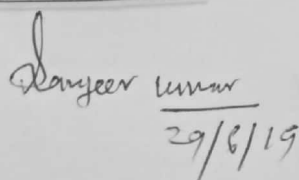 Sanjeev Kumar
29/8/19